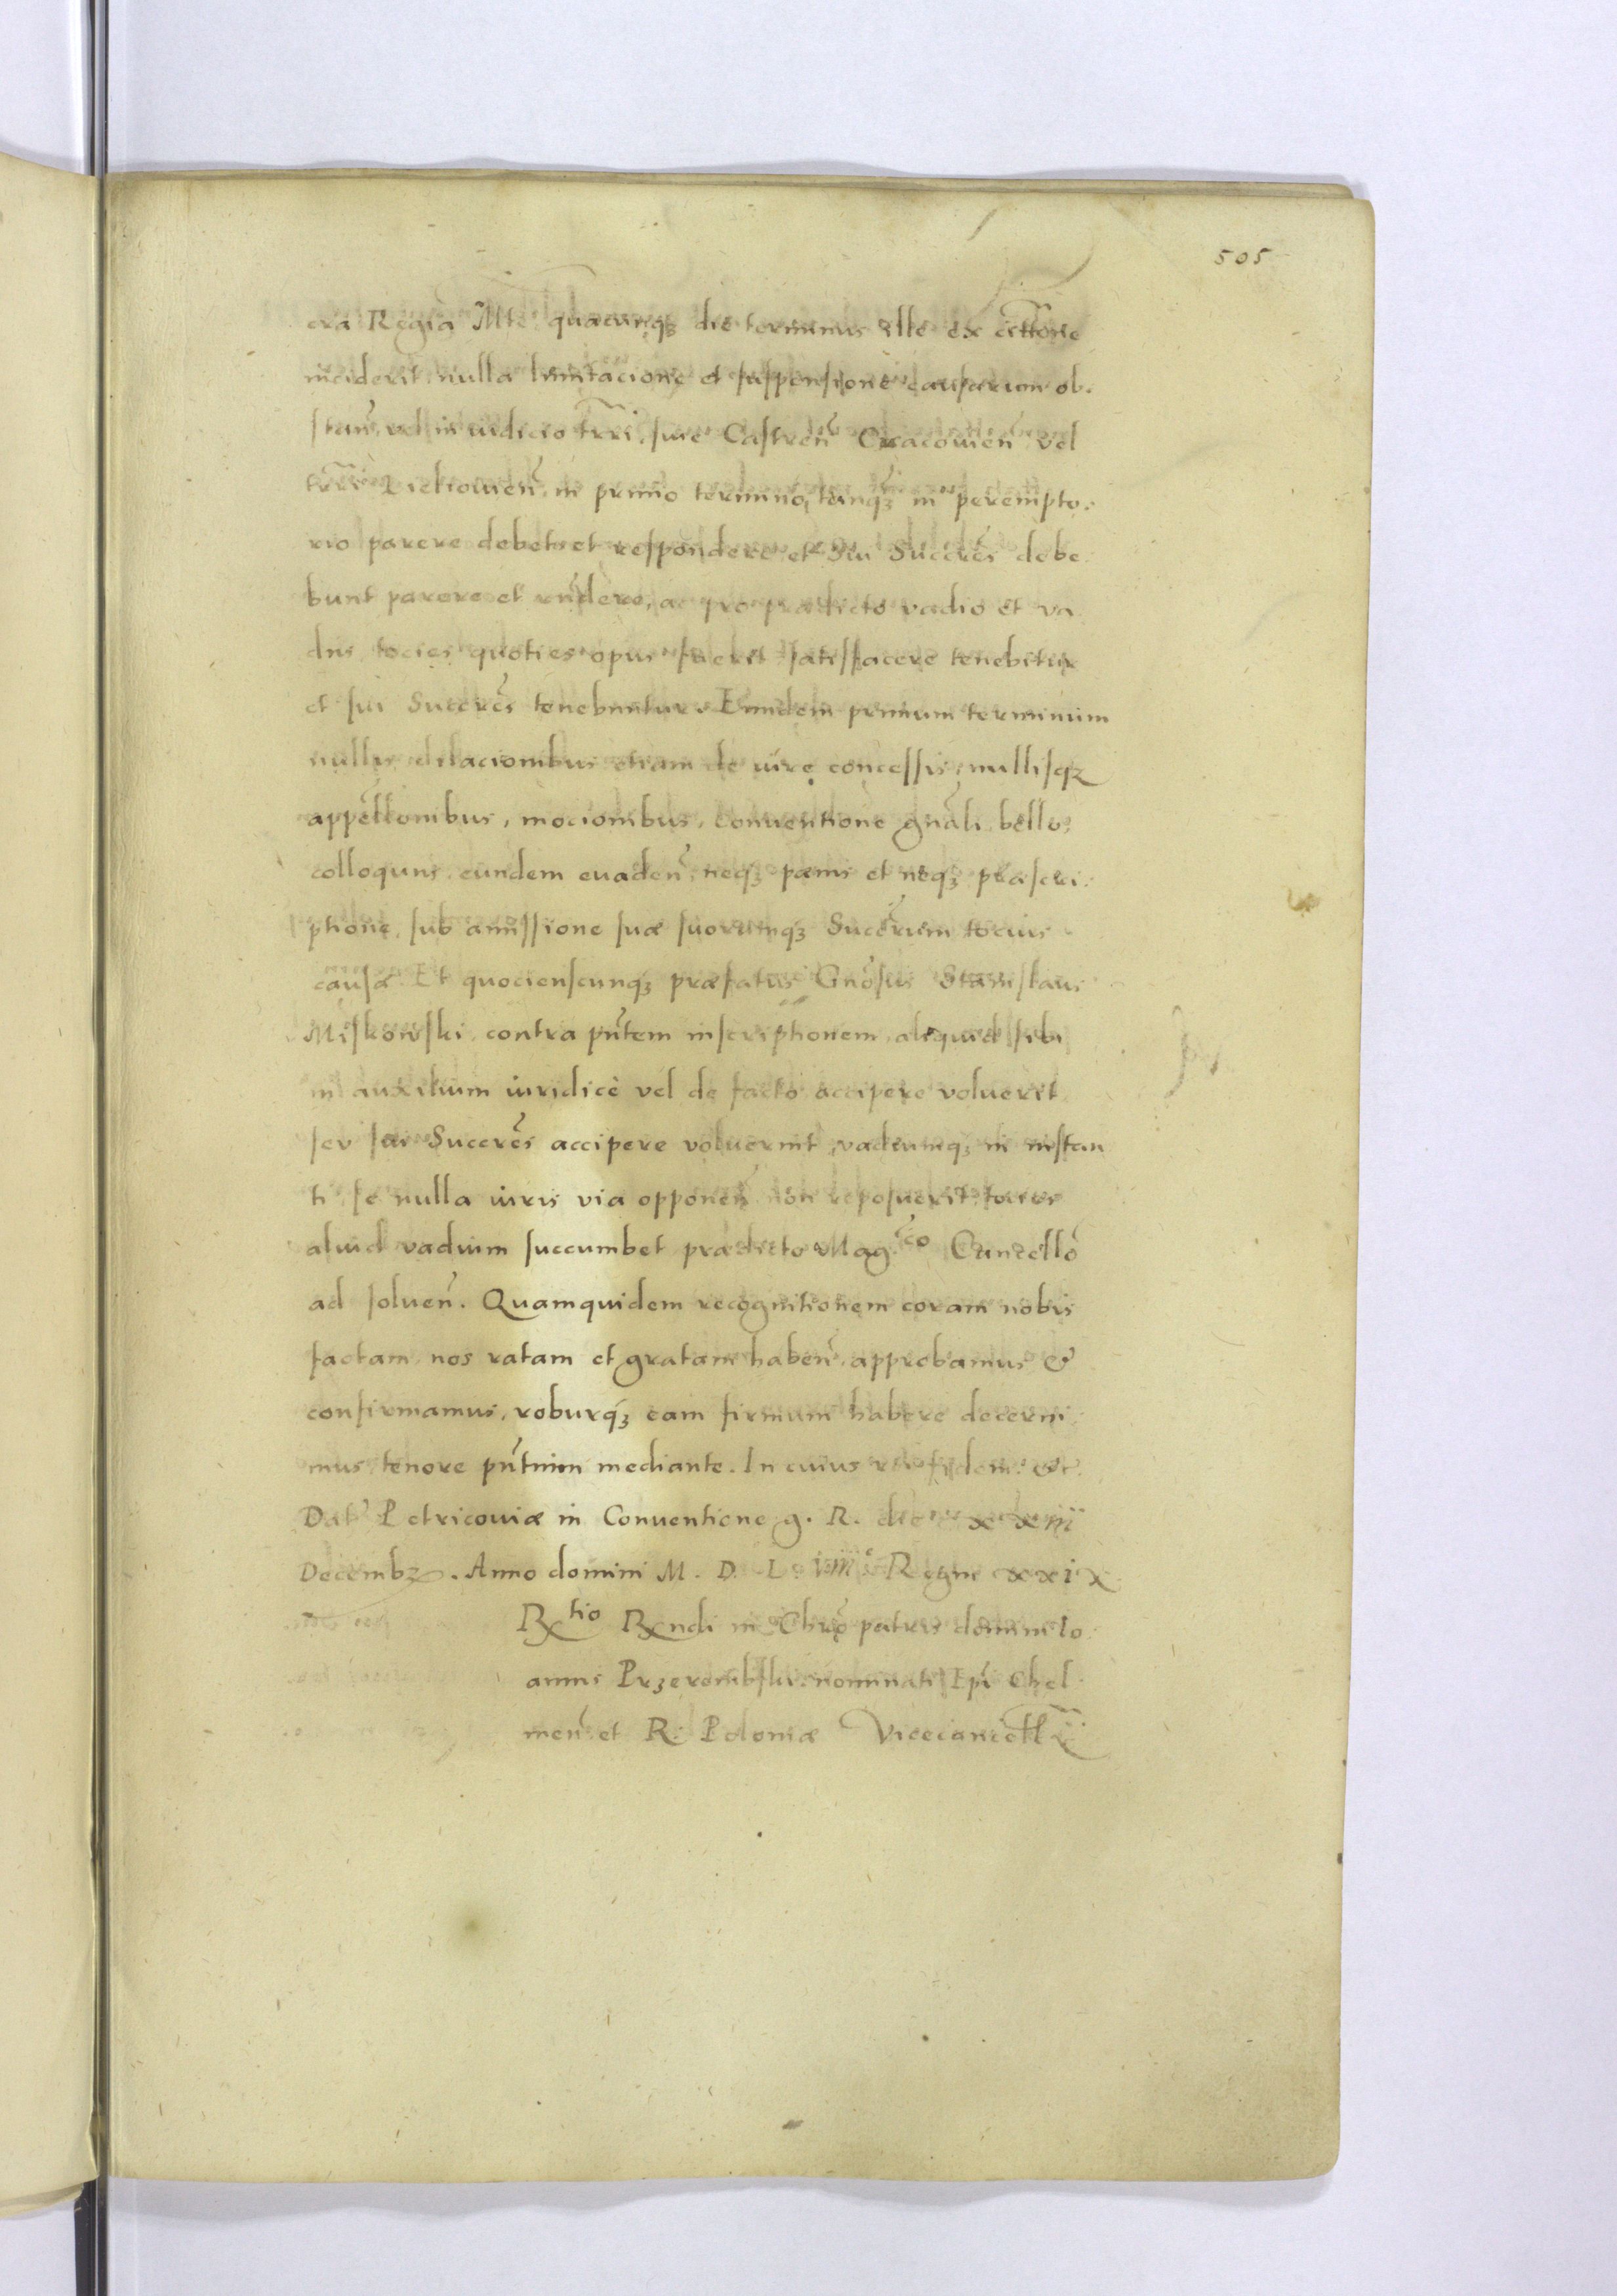 505
cra Regia Mte quacunq3 die terminus ille ex cittone
inciderit nulla limitacione et suspensione causarum ob.
stan̄, vel in iudicio trri, sive Castren̄ Cracovien̄ vel
trri in primo termino, tanq3 in perempto.
rio parere debet et respondere et sui Succrēs debe
bunt parere et rn̄dere, ac pro prædicto vadio et va
diis tocies quoties opus fuerit satisfacere tenebitur
et sui Succrēs tenebuntur. Eundem primum terminum
nullis dilacionibus etiam de iure concessis, nullisq3
appellonibus, mocionibus, conventione gn̄ali, bello,
colloquiis, eundem evaden̄, neq3 pænis et neq3 præscri:
ptione, sub amissione suæ suorumq3 Succrum tocius
causæ. Et quocienscunq3 præfatus Gnōsus Stanislaus
Miskowski, contra pn̄tem inscriptionem, aliquid sibi
in auxilium iuridicè vel de facto accipere voluerit
seu sui Succrēs accipere voluerint, vadiumq3 in instan
ti se nulla iuris via opponen̄ non reposuerit, tocies
aliud vadium succumbet prædicto Mag.co Cancello
ad solven̄. Quamquidem recognitionem coram nobis
factam, nos ratam et gratam haben̄, approbamus &
confirmamus, roburq3 eam firmum habere decerni
mus, tenore pn̄tium mediante. In cuius rei fidem. &c.
Dat̄ Petricoviæ in Conventione g. R. die xxiii
Decembr. Anno domini M. D. L. Regni xxix
Rtio Rndi in Chro patris domini Io
annis Przerembski nominati Epi Chel
men̄ et R. Poloniæ Vicecancell